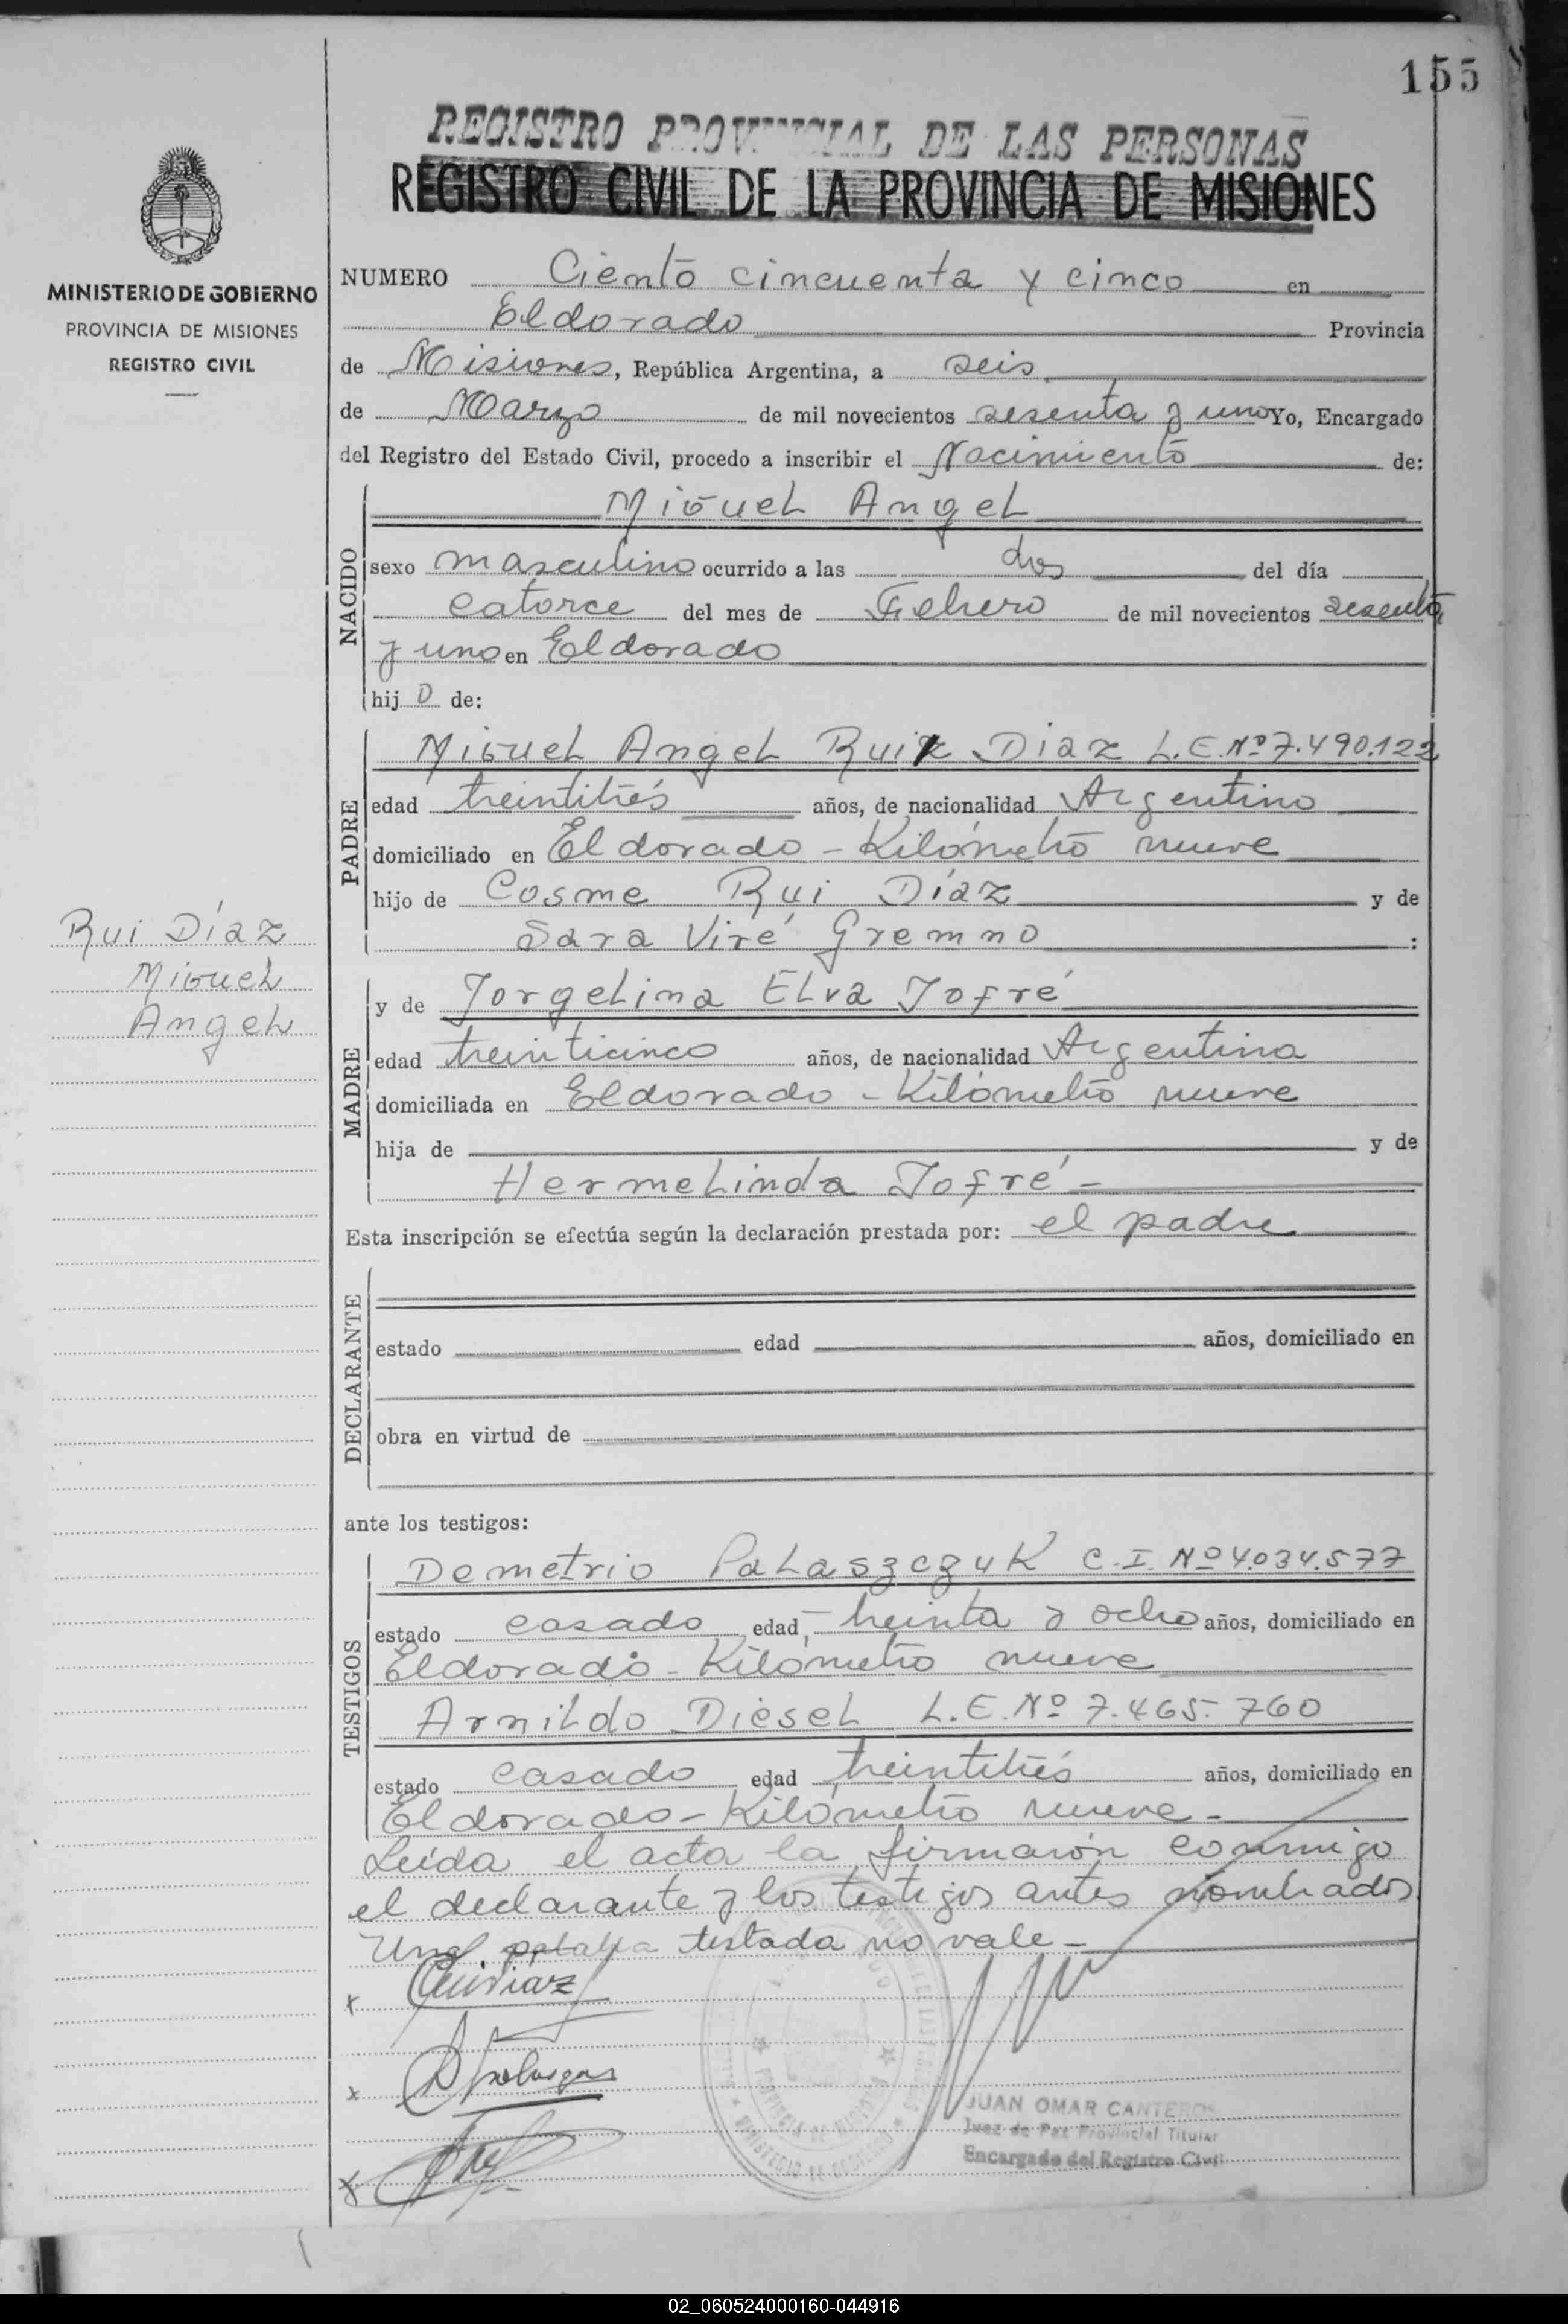 155
REGISTRO PROVINCIAL DE LAS PERSONAS
REGISTRO CIVIL DE LA PROVINCIA DE MISIONES
MINISTERIO DE GOBIERNO
PROVINCIA DE MISIONES
REGISTRO CIVIL
NUMERO Ciento cincuenta y cinco en
Eldorado Provincia
de Misiones, República Argentina, a seis
de Marzo de mil novecientos sesenta y uno Yo, Encargado
del Registro del Estado Civil, procedo a inscribir el Nacimiento de:
NACIDO
Miguel Angel
sexo masculino ocurrido a las dos del día
catorce del mes de Febrero de mil novecientos sesenta
y uno en Eldorado
hijo de:
PADRE
Miguel Angel Rui Diaz L.E.Nº7.490.122
edad treintitrés años, de nacionalidad Argentino
domiciliado en Eldorado - Kilómetro nueve
hijo de Cosme Rui Díaz y de
Sara Viré Gremno :
Rui Díaz
Miguel
Angel
MADRE
y de Jorgelina Elva Jofré
edad treinticinco años, de nacionalidad Argentina
domiciliada en Eldorado - Kilómetro nueve
hija de y de
Hermelinda Jofré -
Esta inscripción se efectúa según la declaración prestada por: el padre
DECLARANTE
estado edad años, domiciliado en
obra en virtud de
ante los testigos:
TESTIGOS
Demetrio Palaszczuk C.I. Nº 4.034.577
estado casado edad treinta y ocho años, domiciliado en
Eldorado - Kilómetro nueve
Arnildo Diesel L.E. Nº 7.465.760
estado casado edad treintitrés años, domiciliado en
Eldorado - Kilómetro nueve -
Leída el acta la firmaron conmigo
el declarante y los testigos antes nombrados
Una palabra testada no vale -
x Ruidiaz
x
x
JUAN OMAR CANTEROS
Juez de Paz Provincial Titular
Encargado del Registro Civil
02_060524000160-044916